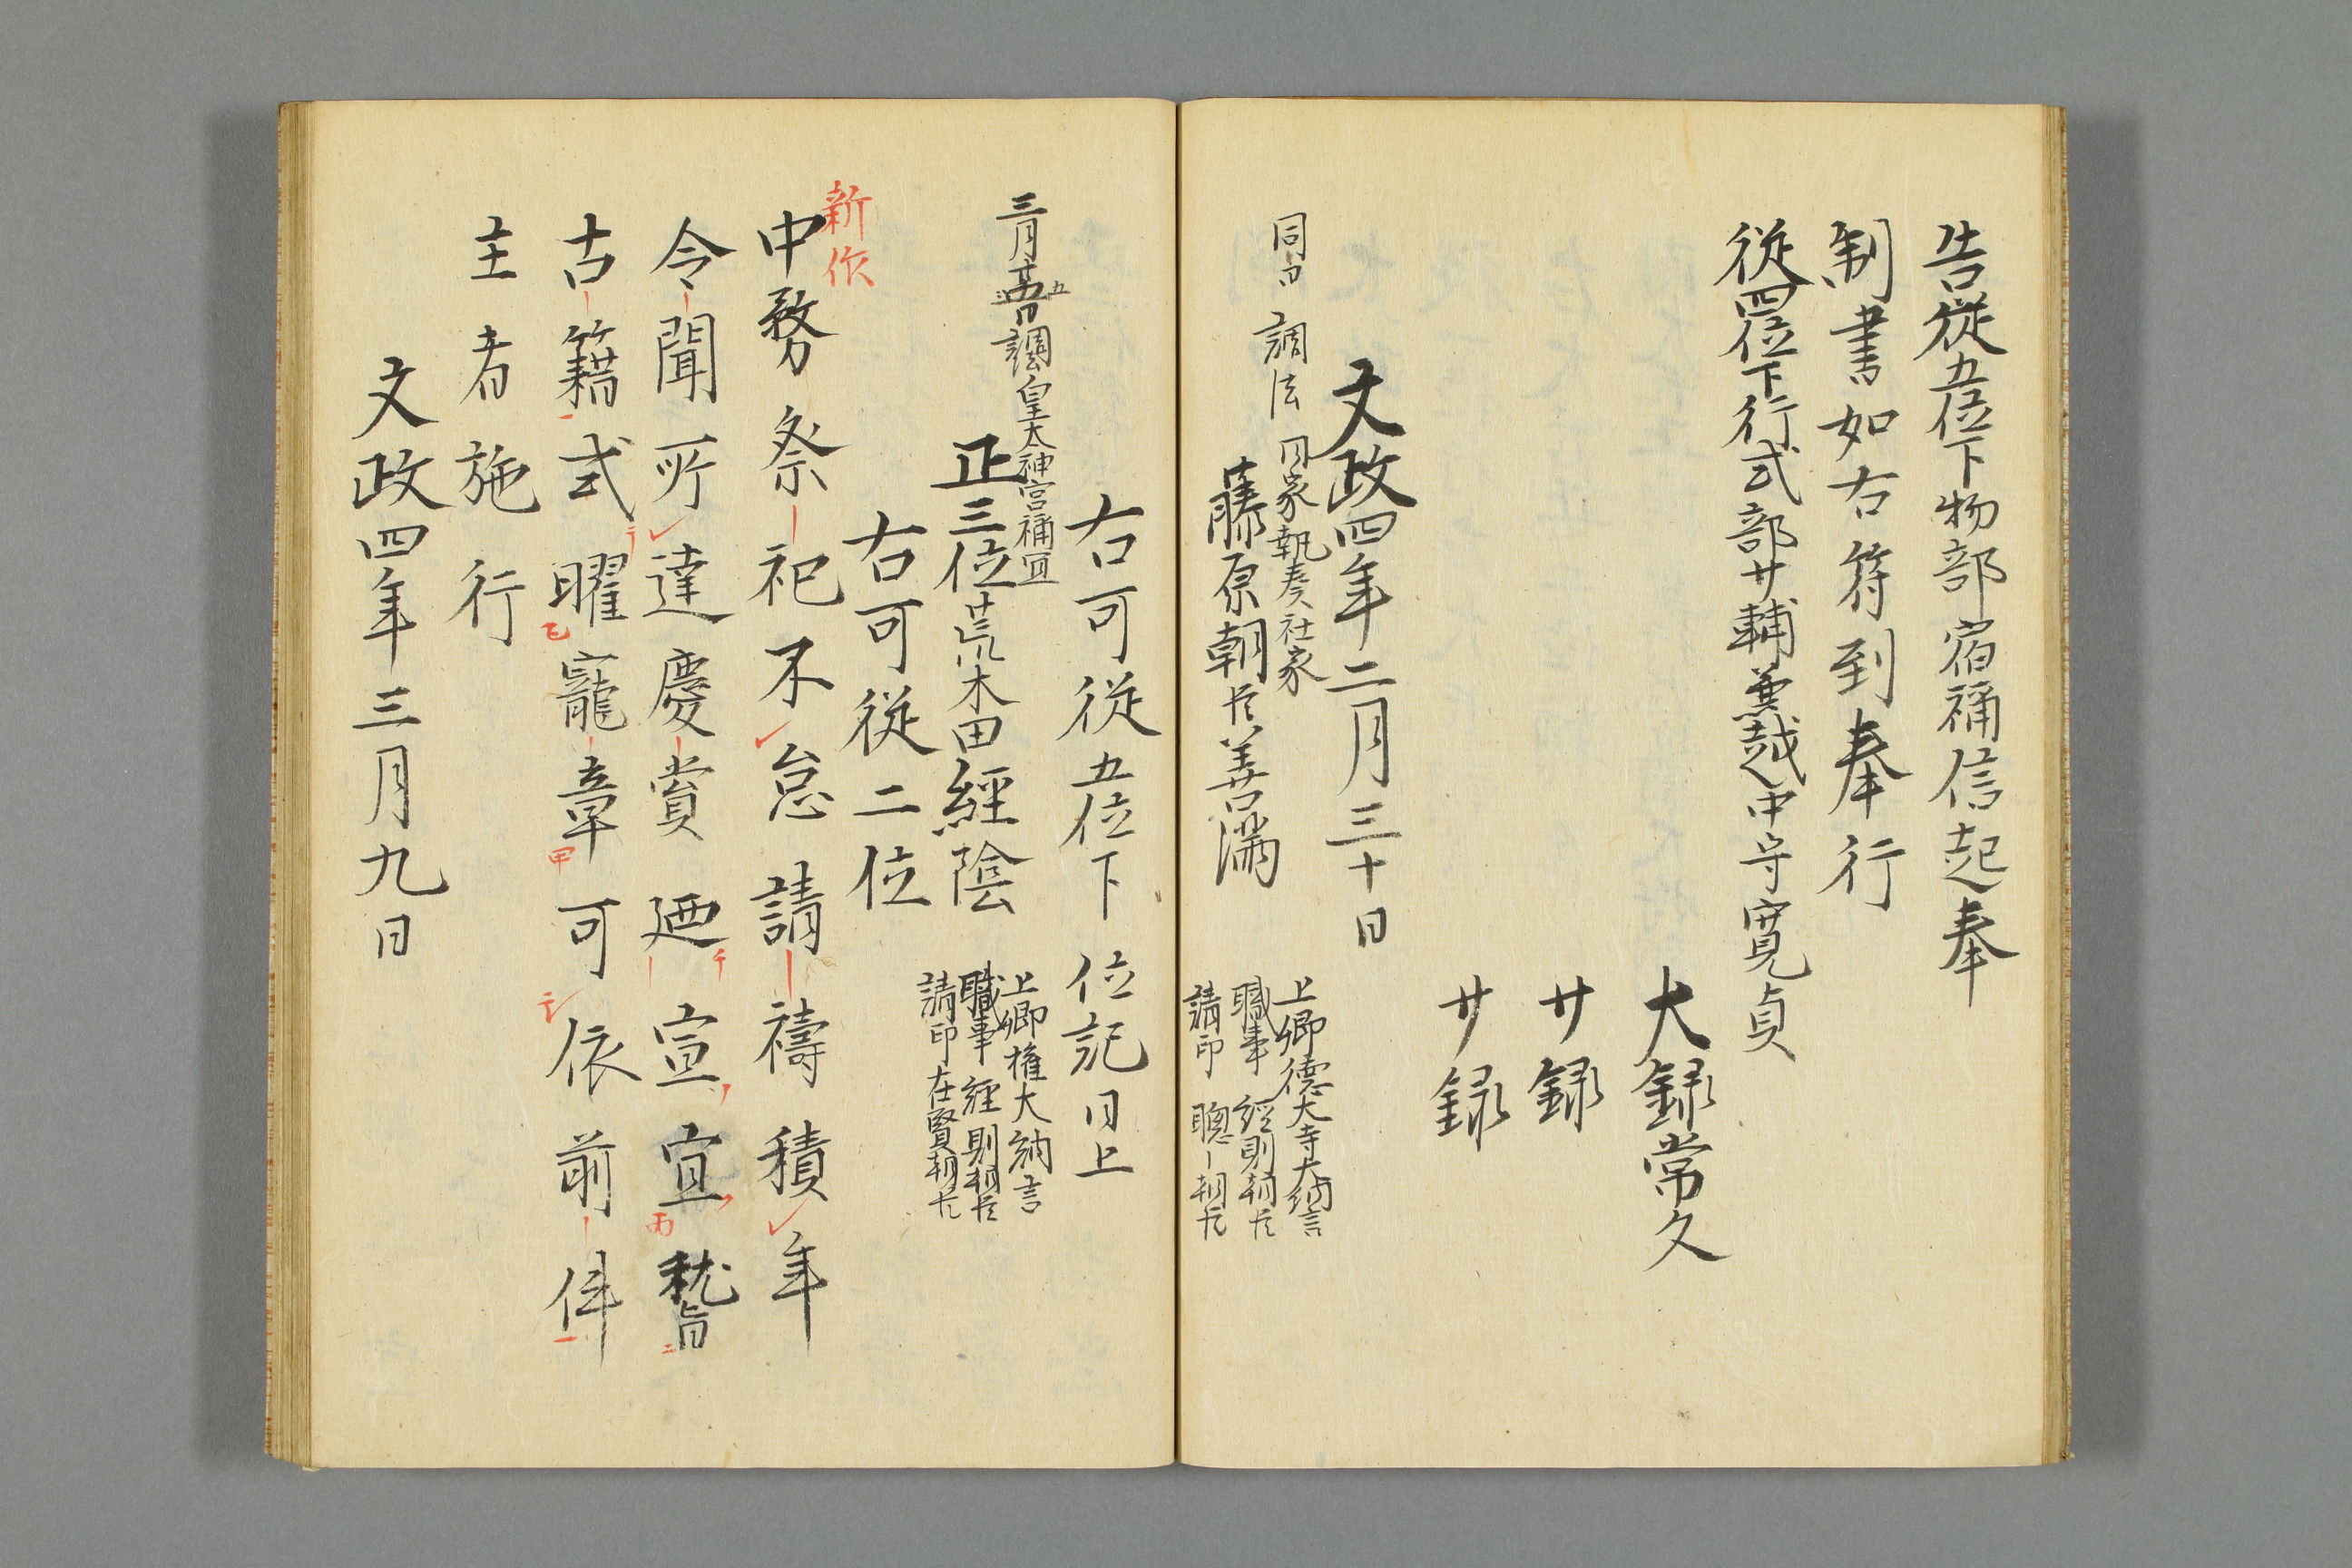 告従五位下物部宿祢信起奉
制書如右符到奉行
従四位下行式部廾輔兼越中守寛貞
大録常久
廾録
廾録
文政四年二月三十日
同日 調法 同家執奏社家
藤原朝臣善満
上卿德大寺大納言
職事 經則朝臣
請印 聰ー朝臣
右可従五位下 位記同上
三月五日調 皇太神宮祢宜
正三位荒木田經陰
上卿權大納言
職事 經則朝臣
請印 在賢朝臣
右可従二位
新作
中務祭祀不怠請禱積年
令聞所達慶賞廼宣宜稽
古籍式曜寵章可依前件
主者施行
文政四年三月九日